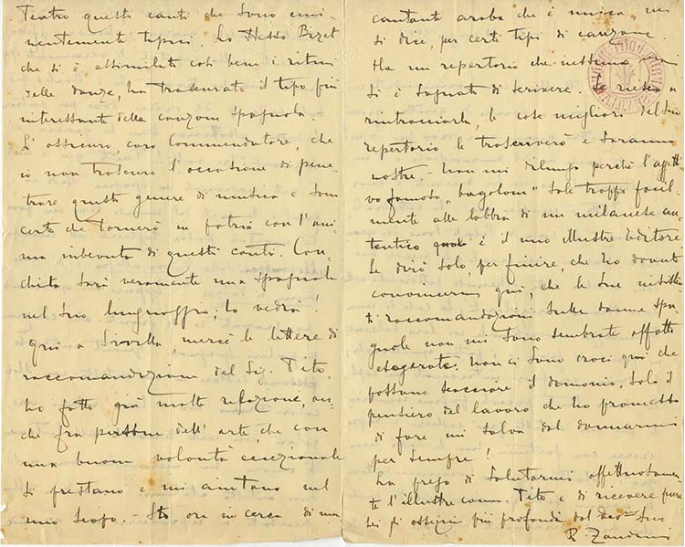 Teatro questi canti che sono emi-
nentemente tipici. Lo stesso Bizet
che si è assimilati così bene i ritmi
delle danze, ha trascurato il tipo più
interessante della canzone spagnola.-
L'assicuro, caro Commendatore, che
io non trascuro l'occasione di pene-
trare questo genere di musica e son
certo che tornerò in patria con l'ani-
ma imbevuta di questi canti. Con-
chita sarà veramente una spagnola
nel suo linguaggio; lo vedrà!
Qui a Siviglia, mercè le lettere di
raccomandazione del Sig. Tito,
ho fatto già molte relazioni, an-
che fra persone dell'arte, che con
una buona volontà eccezionale
si prestano e mi aiutano nel
mio scopo. - Sto ora in cerca di una
cantante araba che è unica, mi
si dice, per certi tipi di canzone.
Ha un repertorio che nessuno
si è sognato di scrivere. Se riesco a
rintracciarla, le cose migliori del suo
repertorio le trascriverò e saranno
nostre. Non mi dilungo perchè l'aggetti-
vo famoso "bagolon" sale troppo facil-
mente alle labbra di un milanese au-
tentico quale è il mio illustre Editore.
Le dirò solo, per finire, che ho dovuto
convincermi qui, che le sue
raccomandazioni sulle donne spa-
gnole non mi sono sembrate affatto
esagerate. Non ci sono croci qui che
possano scacciare il demonio. Solo il
pensiero del lavoro che ho promesso
di fare mi salva dal dannarmi
per sempre!
La prego di salutarmi affettuosamen-
te l'illustre comm. Tito e di ricevere pure
Lei gli ossequi più profondi dal Suo
R. Zandonai